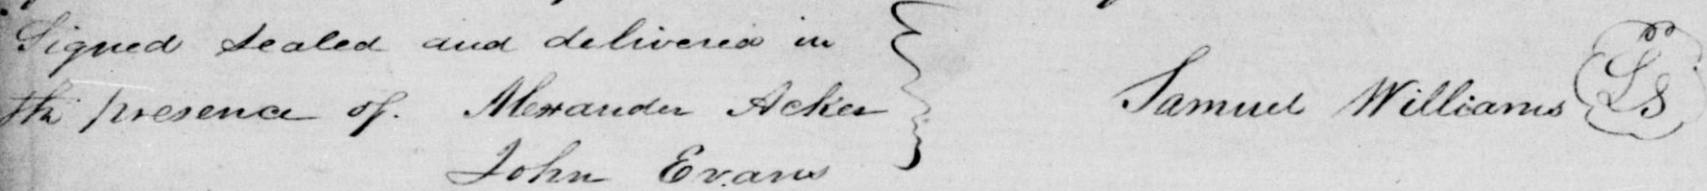 Signed sealed and delivered in
the presence of. Alexander Acker
John Evans
Samuel Williams LS